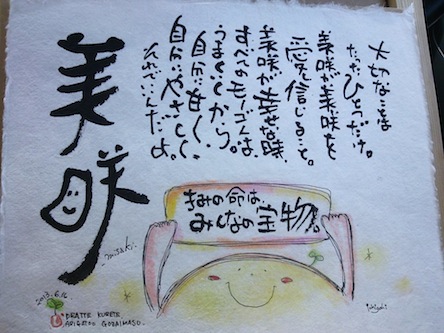 大切なことは
たったひとつだけ。
美咲が美咲を
愛を信じること。
美咲が幸せな時、
すべてのモノゴトは、
うまくいくから。
自分に甘く、
自分にやさしく
それでいいんだよ。
美咲
misaki.
きみの命は、
みんなの宝物。
2013.6.16
DEATTE KURETE
ARIGATOO GOZAIMASU.